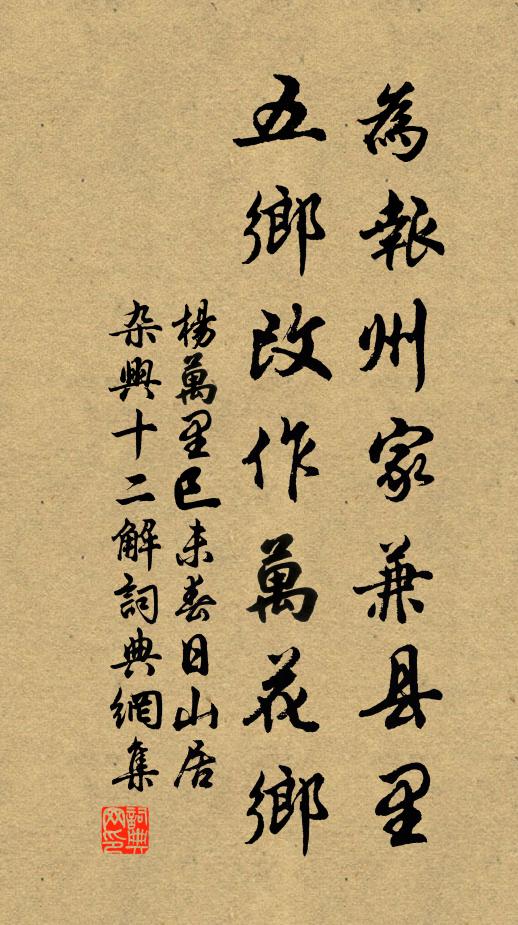 為報州家兼县里
五鄉改作萬花鄉
楊萬里巳未春日山居
杂興十二解詞典網集
詞典
网印